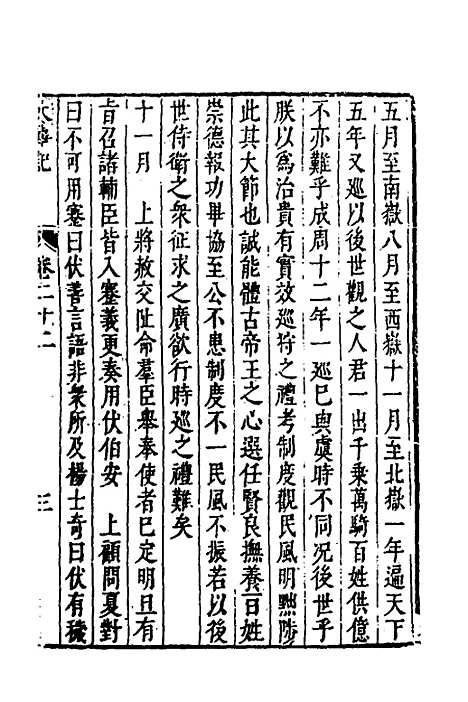 五月至南嶽八月至西嶽十一月至北嶽一年遍天下
五年又巡以後世觀之人君一出千乘萬騎百姓供億
不亦難乎成周十二年一巡已與虞時不同況後世乎
朕以爲治貴有實效巡狩之禮考制度觀民風明黜陟
此其大節也誠能體古帝王之心選任賢良撫養百姓
崇德報功畢協至公不患制度不一民風不振若以後
世侍衛之衆征求之廣欲行時巡之禮難矣
十一月　上將赦交阯命羣臣舉奉使者已定明旦有
旨召諸輔臣皆入蹇義更奏用伏伯安　上顧問夏對
曰不可用蹇曰伏善言語非衆所及楊士奇曰伏有穢
大學記　卷二十二　三